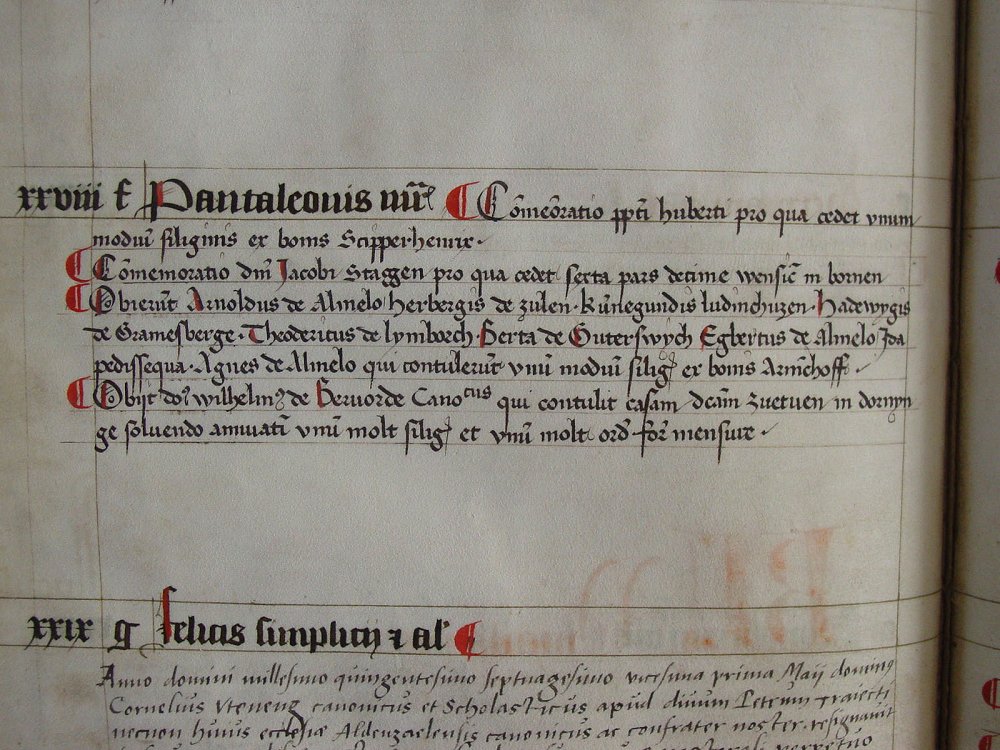 xxviii f Pantaleonis mr̄ꝭ Cōmeōratio ppt̄i huberti pro qua cedet vnum
modiū siliginis ex bonis Scipperhenrix
Cōmemoratio dn̄i Jacobi Staggen pro qua cedet sexta pars decime wensic̄ in bornen
Obierūt Arnoldus de Almelo herbergis de zulen Kūnegundis ludinchuzen hadewygis
de Gramesberge Theodericus de lymborch Berta de Guterswych Egbertus de Almelo Ida
pedissequa Agnes de Almelo qui contulerūt vnū modiū silig ex bonis Armēhoff
Obijt do wilhelm de Beruorde Canocus qui contulit casam dcām zuetuen in dornyn
ge soluendo annuatī vnū molt silig et vnū molt ord for mensure
xxix g felicis simplicij ⁊ al
Anno domini millesimo quingentesimo septuagesimo vicesima prima Maij dominus
Cornelius Vteneng canonicus et Scholasticus apud diuum Petrum Traiecti
necnon huius ecclesiæ Aldenzaelensis canonicus ac confrater noster resignauit
perpetuo